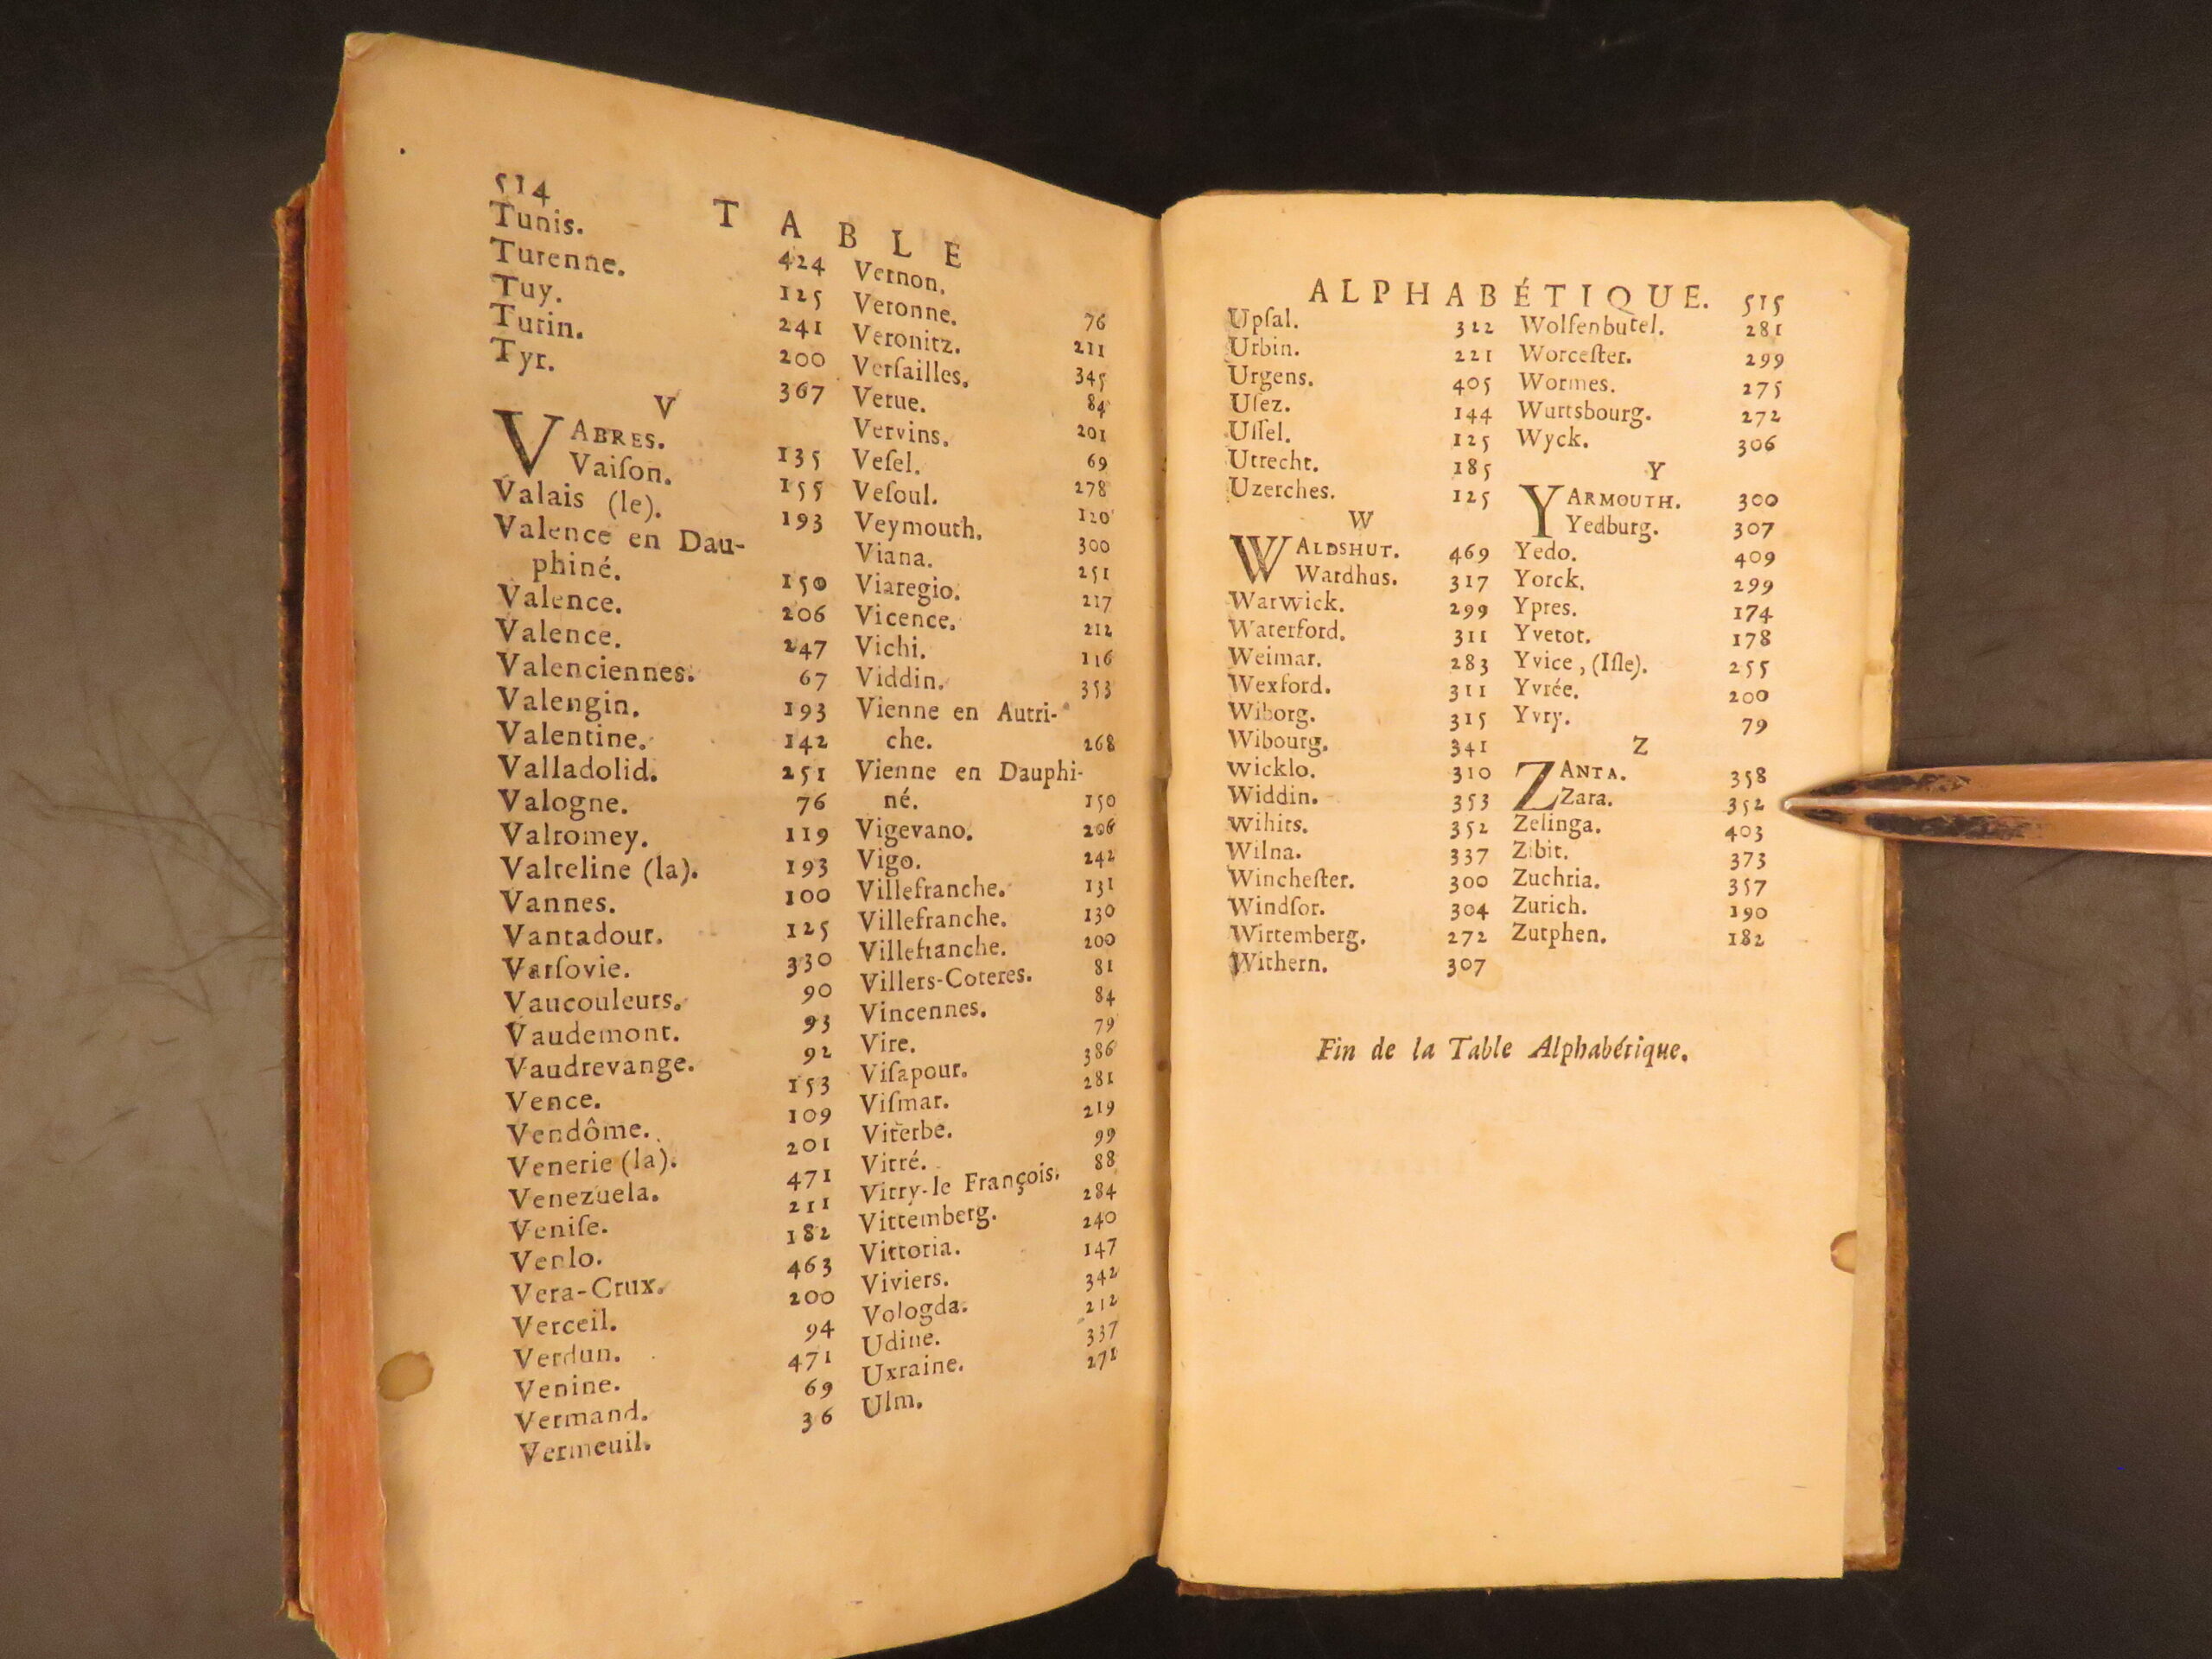 514
T A B L E
Tunis. 424
Turenne. 125
Tuy. 241
Turin. 200
Tyr. 367
V
VABRES. 135
Vaiſon. 155
Valais (le). 193
Valence en Dau-
phiné. 150
Valence. 206
Valence. 247
Valenciennes. 67
Valengin. 193
Valentine. 142
Valladolid. 251
Valogne. 76
Valromey. 119
Valteline (la). 193
Vannes. 100
Vantadour. 125
Varſovie. 330
Vaucouleurs. 90
Vaudemont. 93
Vaudrevange. 92
Vence. 153
Vendôme. 109
Venerie (la). 201
Venezuela. 471
Veniſe. 211
Venlo. 182
Vera-Crux. 463
Verceil. 200
Verdun. 94
Venine. 471
Vermand. 69
Vermeuil. 36
Vernon. 76
Veronne. 211
Veronitz. 345
Verſailles. 84
Verue. 201
Vervins. 69
Veſel. 278
Veſoul. 120
Veymouth. 300
Viana. 251
Viaregio. 217
Vicence. 212
Vichi. 116
Viddin. 353
Vienne en Autri-
che. 268
Vienne en Dauphi-
né. 150
Vigevano. 206
Vigo. 242
Villefranche. 131
Villefranche. 130
Villefranche. 200
Villers-Coteres. 81
Vincennes. 84
Vire. 79
Viſapour. 386
Viſmar. 281
Viterbe. 219
Vitré. 99
Vitry-le François. 88
Vittemberg. 284
Vittoria. 240
Viviers. 147
Vologda. 342
Udine. 212
Uxraine. 337
Ulm. 271
ALPHABÉTIQUE. 515
Upſal. 322
Urbin. 221
Urgens. 405
Uſez. 144
Uſſel. 125
Utrecht. 185
Uzerches. 125
W
WALDSHUT. 469
Wardhus. 317
Warwick. 299
Waterford. 311
Weimar. 283
Wexford. 311
Wiborg. 315
Wibourg. 341
Wicklo. 310
Widdin. 353
Wihits. 352
Wilna. 337
Wincheſter. 300
Windſor. 304
Wirtemberg. 272
Withern. 307
Wolfenbutel. 281
Worceſter. 299
Wormes. 275
Wurtsbourg. 272
Wyck. 306
Y
YARMOUTH. 300
Yedburg. 307
Yedo. 409
Yorck. 299
Ypres. 174
Yvetot. 178
Yvice, (Iſle). 255
Yvrée. 200
Yvry. 79
Z
ZANTA. 358
Zara. 352
Zelinga. 403
Zibit. 373
Zuchria. 357
Zurich. 190
Zutphen. 182
Fin de la Table Alphabétique.